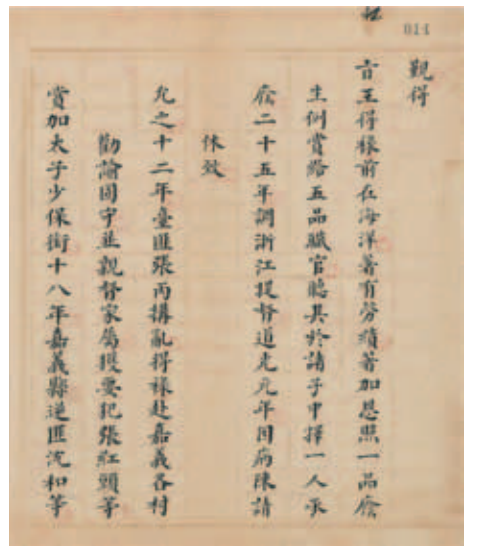 014
覲得
旨王得祿前在海洋著有勞績著加恩照一品廕
生例賞給五品職官聽其於諸子中擇一人承
廕二十五年調浙江提督道光元年因病陳請
休致
允之十二年臺匪張丙搆亂得祿赴嘉義各村
勸諭固守並親督家屬獲要犯張紅頭等
賞加太子少保銜十八年嘉義縣逆匪沈和等